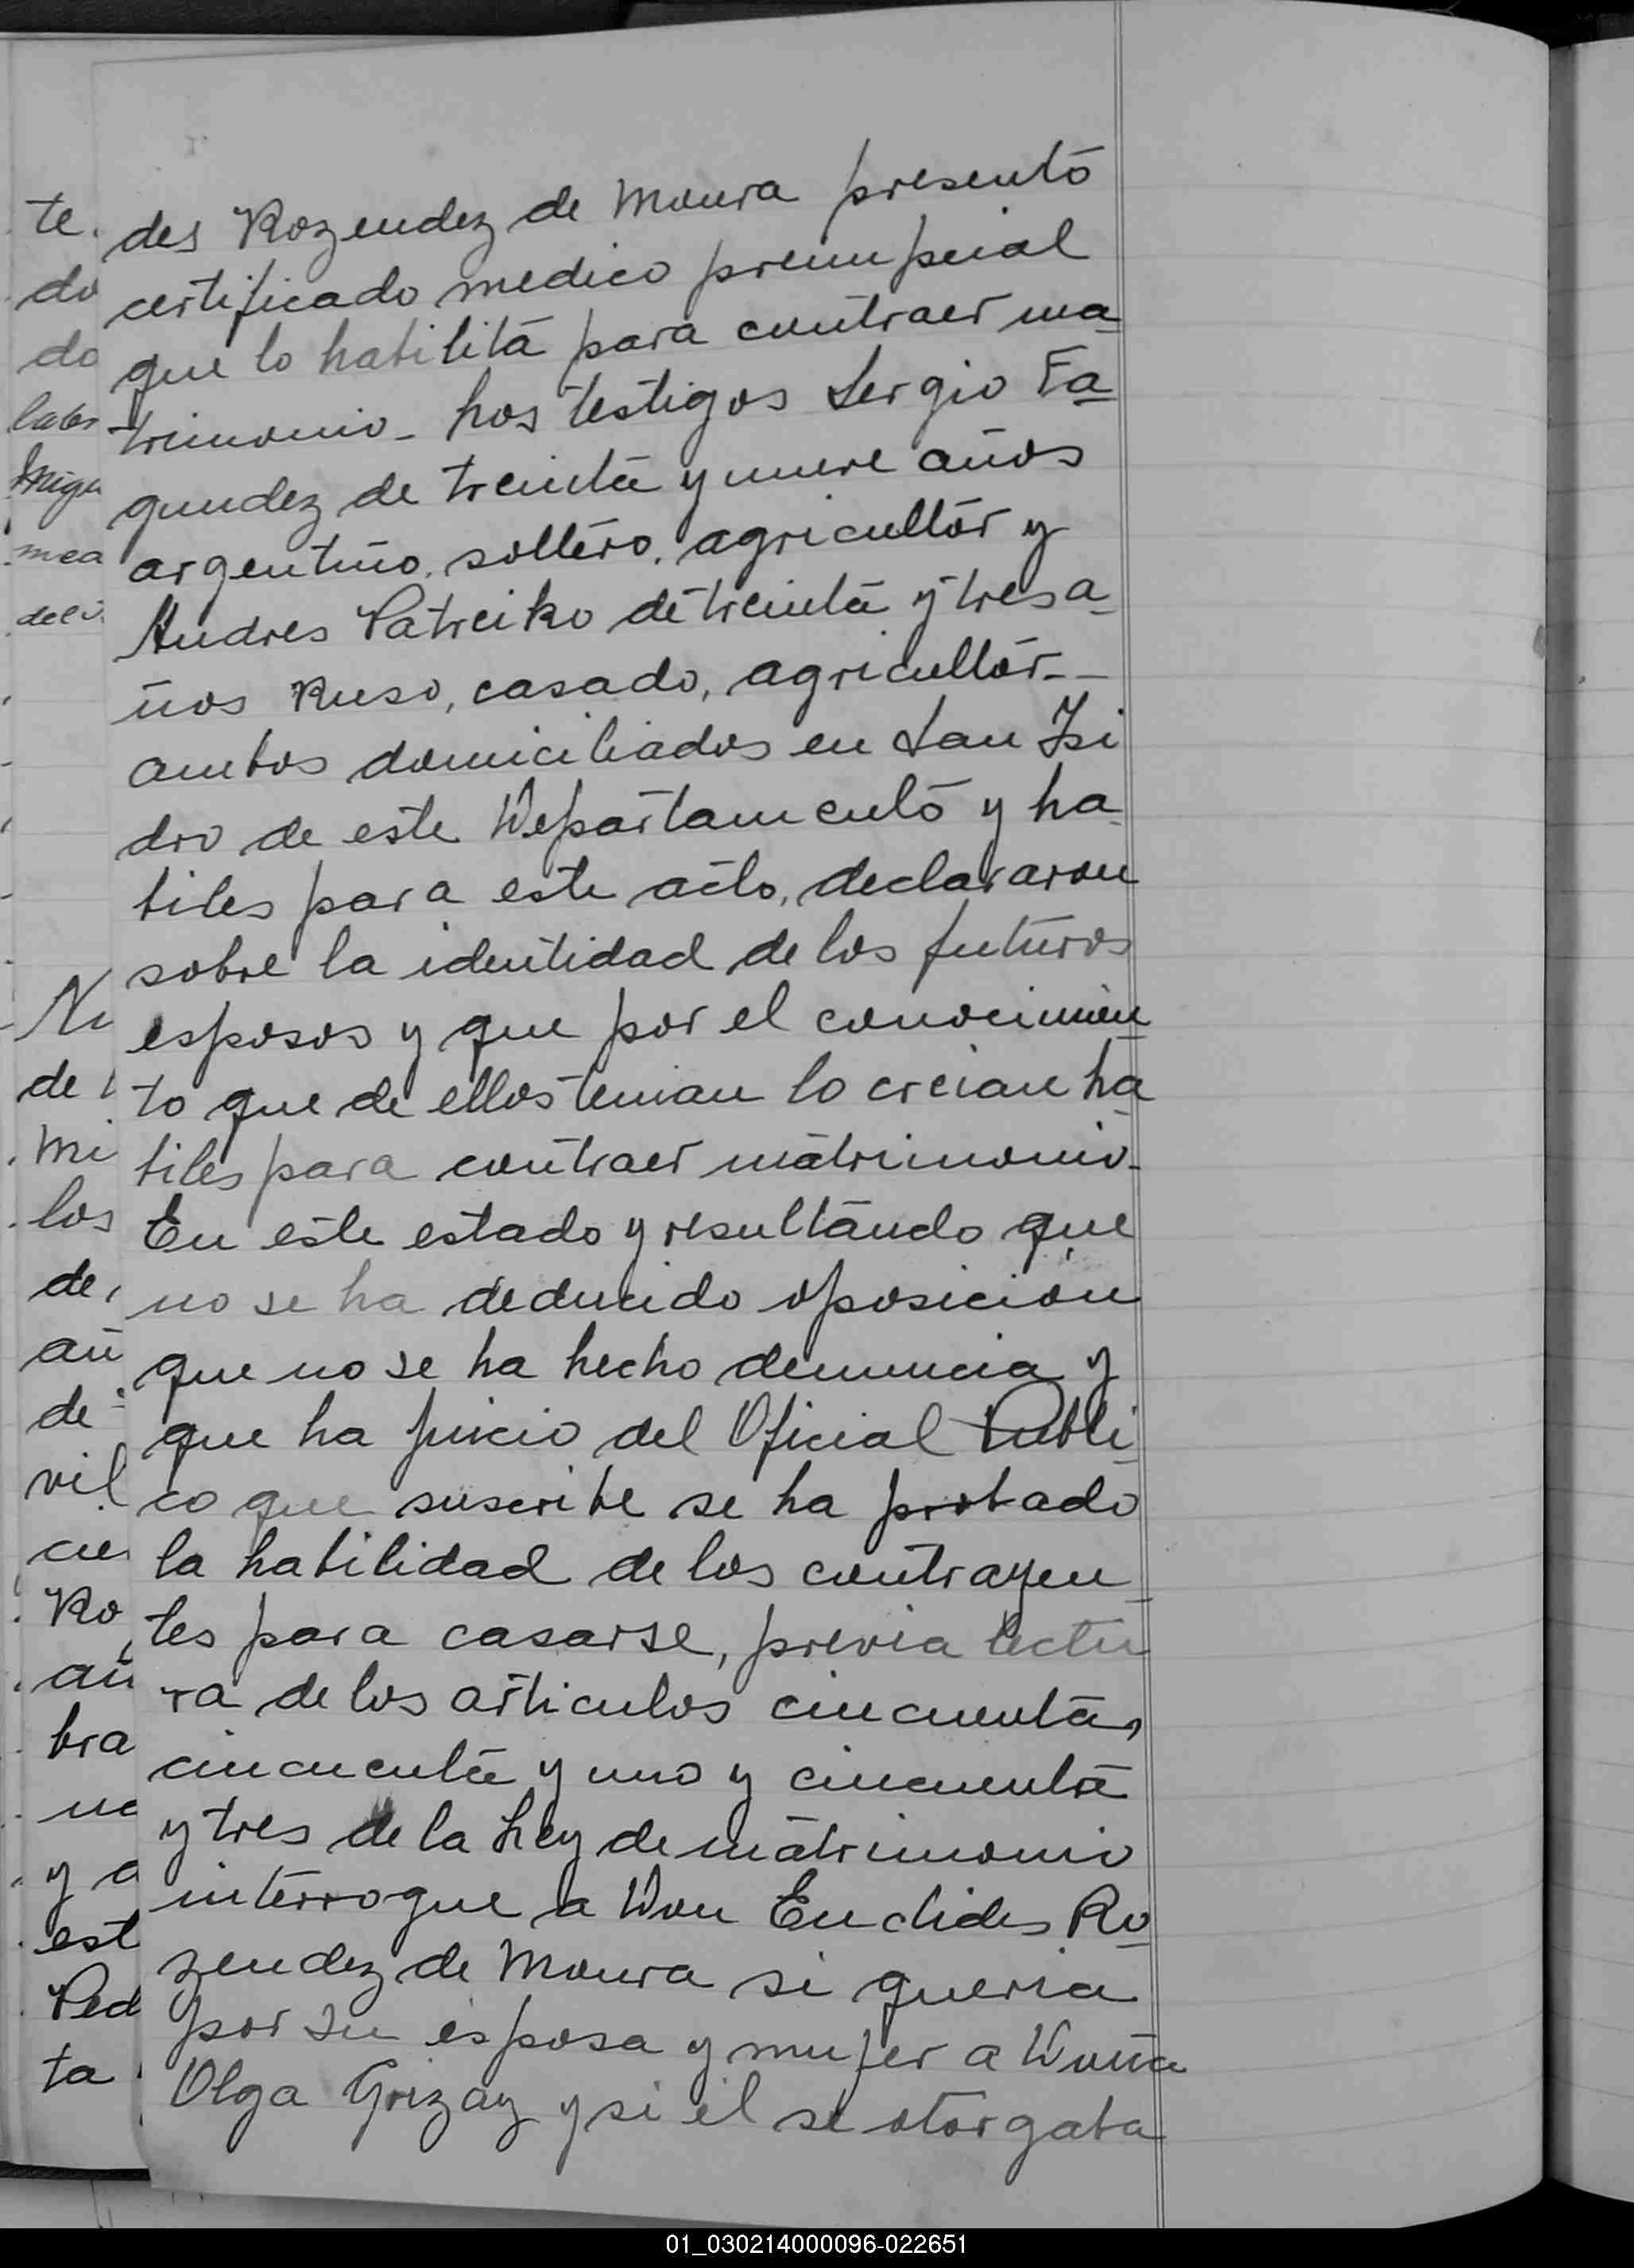 des Rozendez de Moura presentó
certificado medico prenupcial
que lo habilita para contraer ma-
trimonio - Los testigos Sergio Fa-
gundez de treinta y nueve años
argentino, soltero, agricultor y
Andres Patreiko de treinta y tres a-
ños Ruso, casado, agricultor - -
ambos domiciliados en San Isi
dro de este Departamento y ha-
biles para este acto, declararon
sobre la identidad de los futuros
esposos y que por el conocimien-
to que de ellos tenian lo creian ha-
biles para contraer matrimonio -
En este estado y resultando que
no se ha deducido oposicion
que no se ha hecho denuncia y
que ha juicio del Oficial Publi-
co que suscribe se ha probado
la habilidad de los contrayen-
tes para casarse, previa lectu
ra de los articulos cincuenta,
cincuenta y uno y cincuenta
y tres de la Ley de matrimonio
interrogue a Don Euclides Ro-
zendez de Moura si queria
por su esposa y mujer a Doña
Olga Grizay y si el se otorgaba
te.
do
do
mea
Ni
de
mi
los
de
añ
de
vil
Ro
añ
bra
y a
est
Ped
ta
01_030214000096-022651